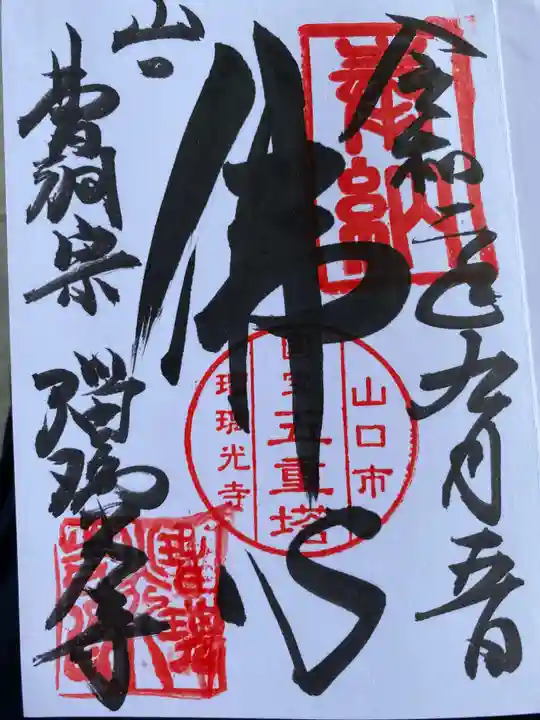 令和二年九月吉日
奉納
佛心
山口市
国宝五重塔
瑠璃光寺
山
曹洞宗 瑠璃光寺